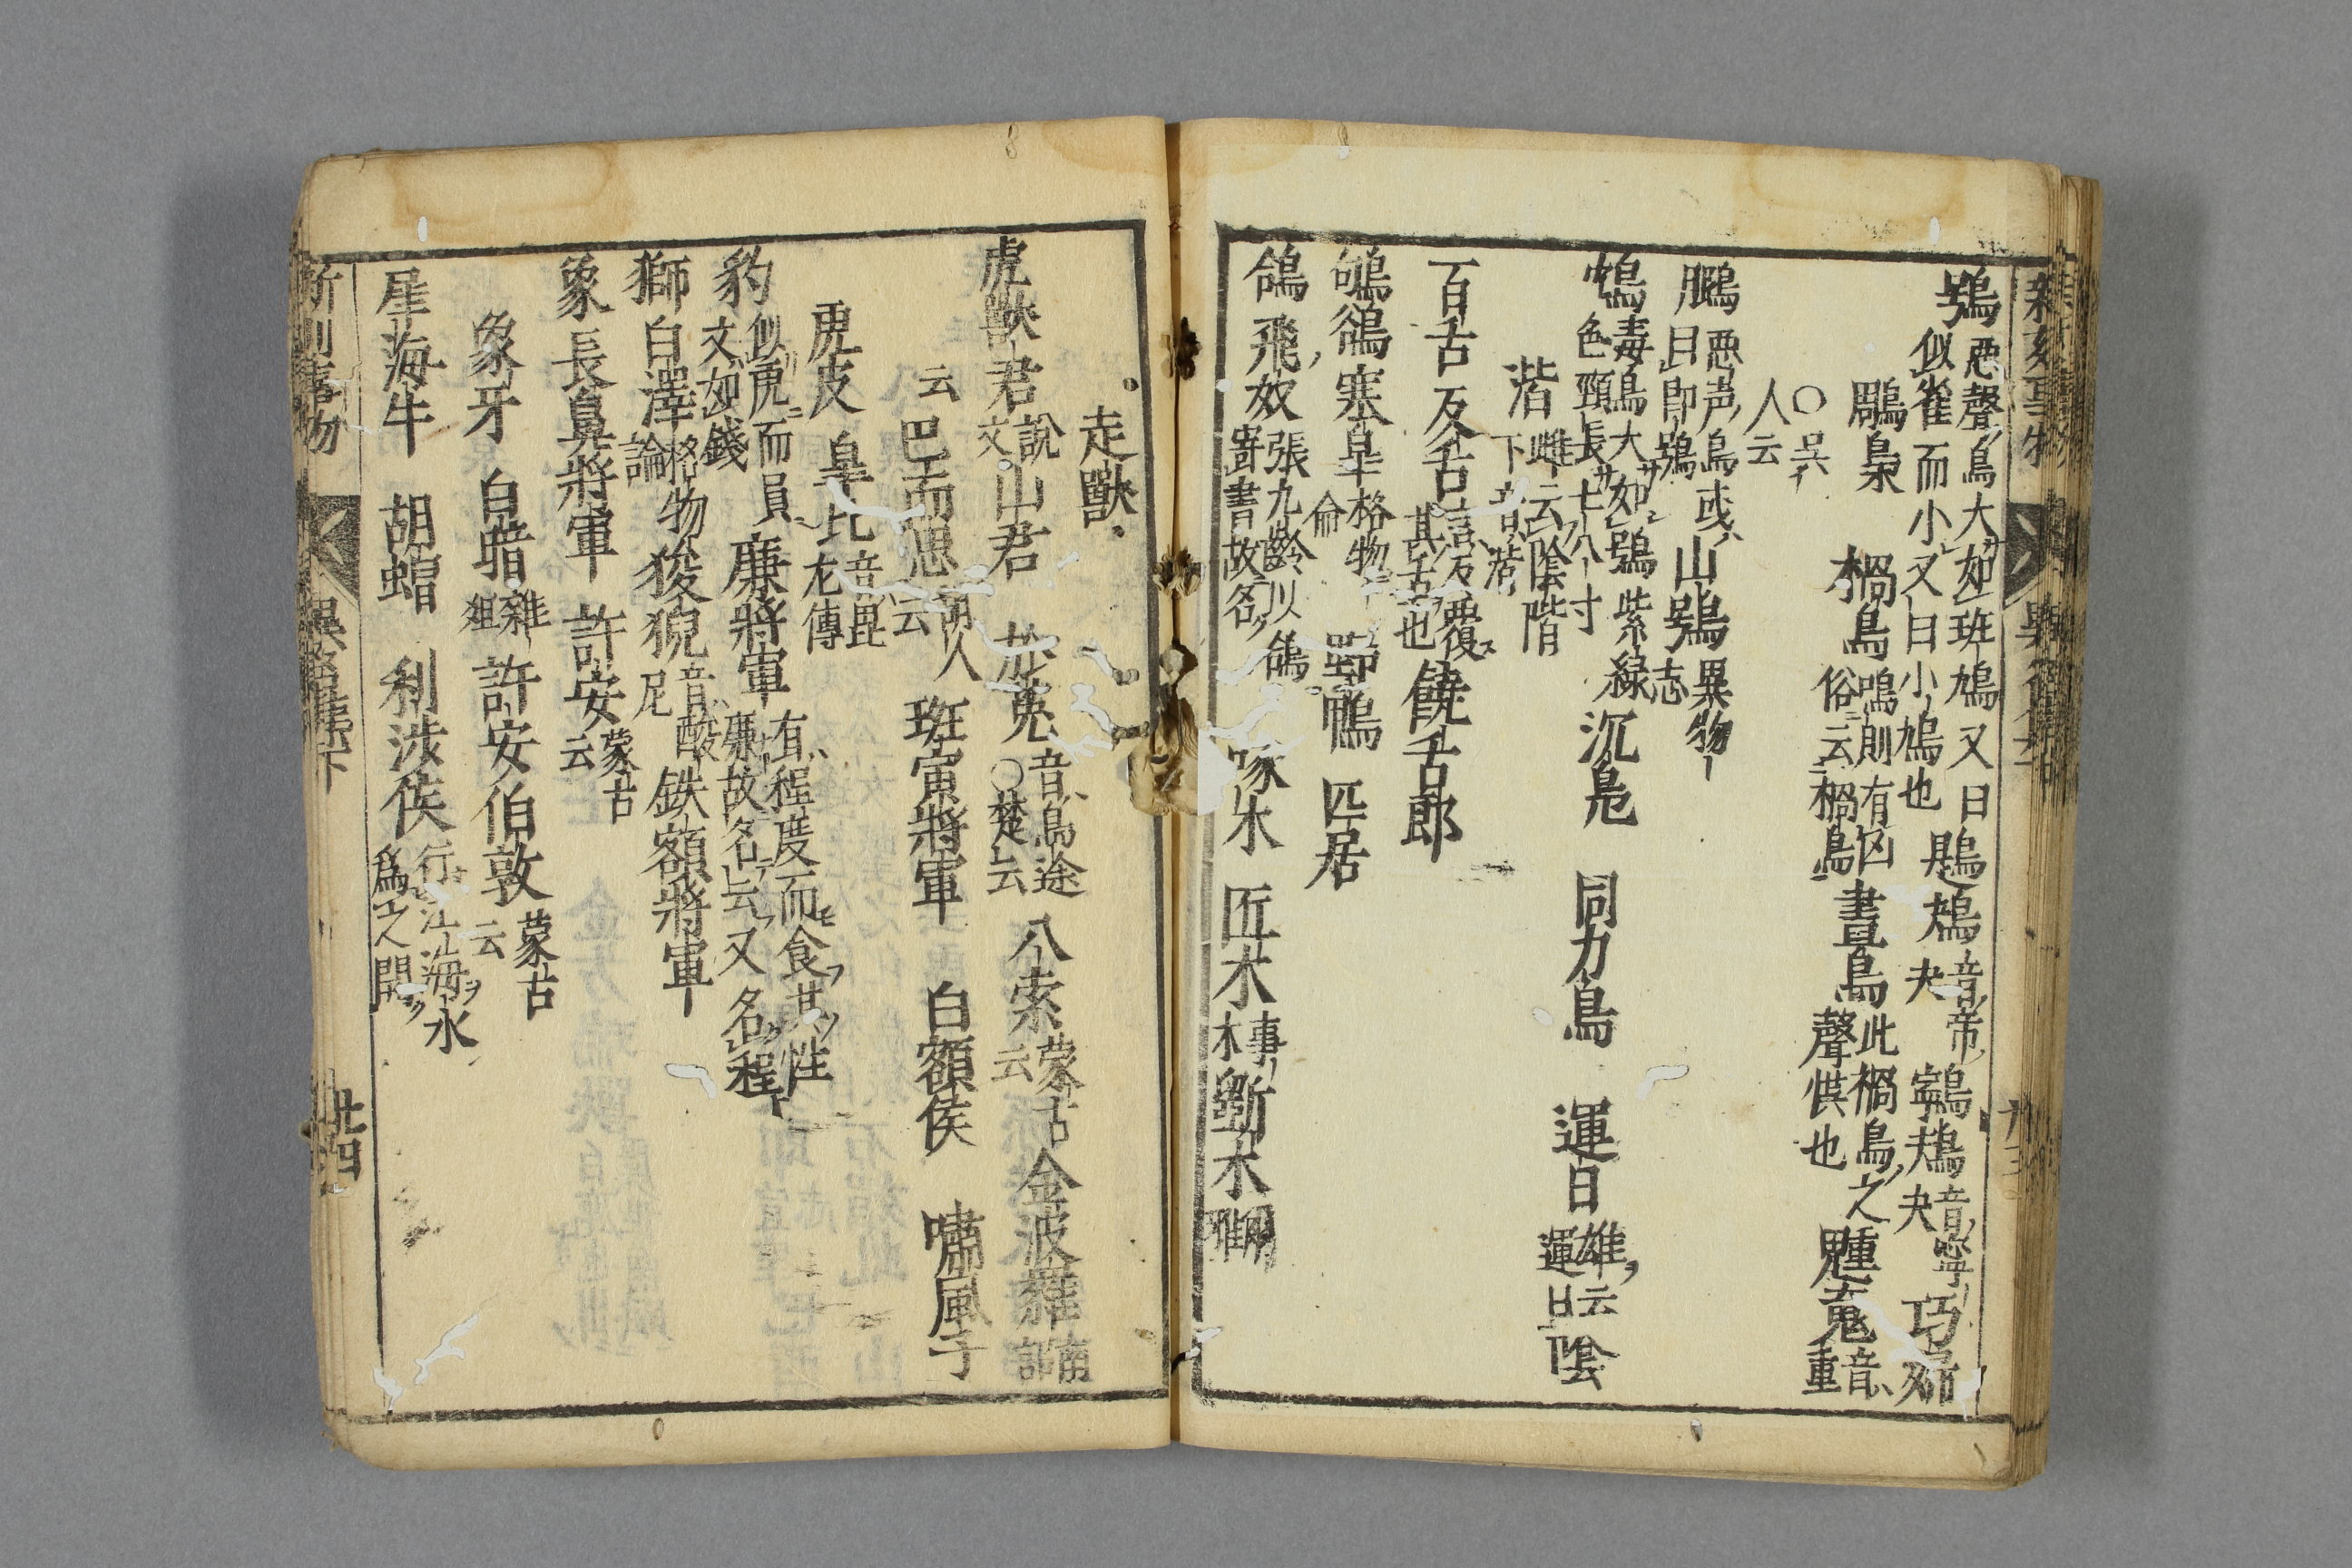 鴞 惡聲鳥大如班鳩又曰 鶗鴂 音帝 鸋鴂 音寧 巧婦
似雀而小又曰小鳩也 夬 夬
鵰梟 禍鳥 鳴則有凶 晝鳥 此禍鳥之 魖䰟 音
俗云禍鳥 聲慔也 重
○吳
人云
鵩 惡声鳥或 山鴞 異物
曰即鴞 志
鴆 毒鳥大如鴞紫綠 沉鳧 同力鳥 運日 雄云
色頸長七八寸 運日 陰
諧 雌云陰諧
下音諧
百舌 反舌 言反覆 饒舌郎
其舌也
鴝鵒 寒皐 格物 鸜鴝 匹居
侖
鴿 飛奴 張九齡以鴿 啄木 匠木 事 斲木 爾
寄書故名 木 雅
走獸
虎 獸君 說 山君 於菟 音烏途 八索 蒙古 金波羅 南
文 ○楚云 云 詔
云 巴而思 胡人 班寅將軍 白額侯 嘯風子
云
虎皮 皐比 音毘
左傳
豹 似虎而員 廉將軍 有程度而食其性
文如錢 廉故名云又名程
獅 白澤 格物 狻猊 音酸 鉄額將軍
論 尼
象 長鼻將軍 許安 蒙古
云
象牙 白暗 雜 許安伯敦 蒙古
俎 云
犀 海牛 胡蝐 利涉侯 行江海水
爲之開
新刻事物 異名集下 廿四